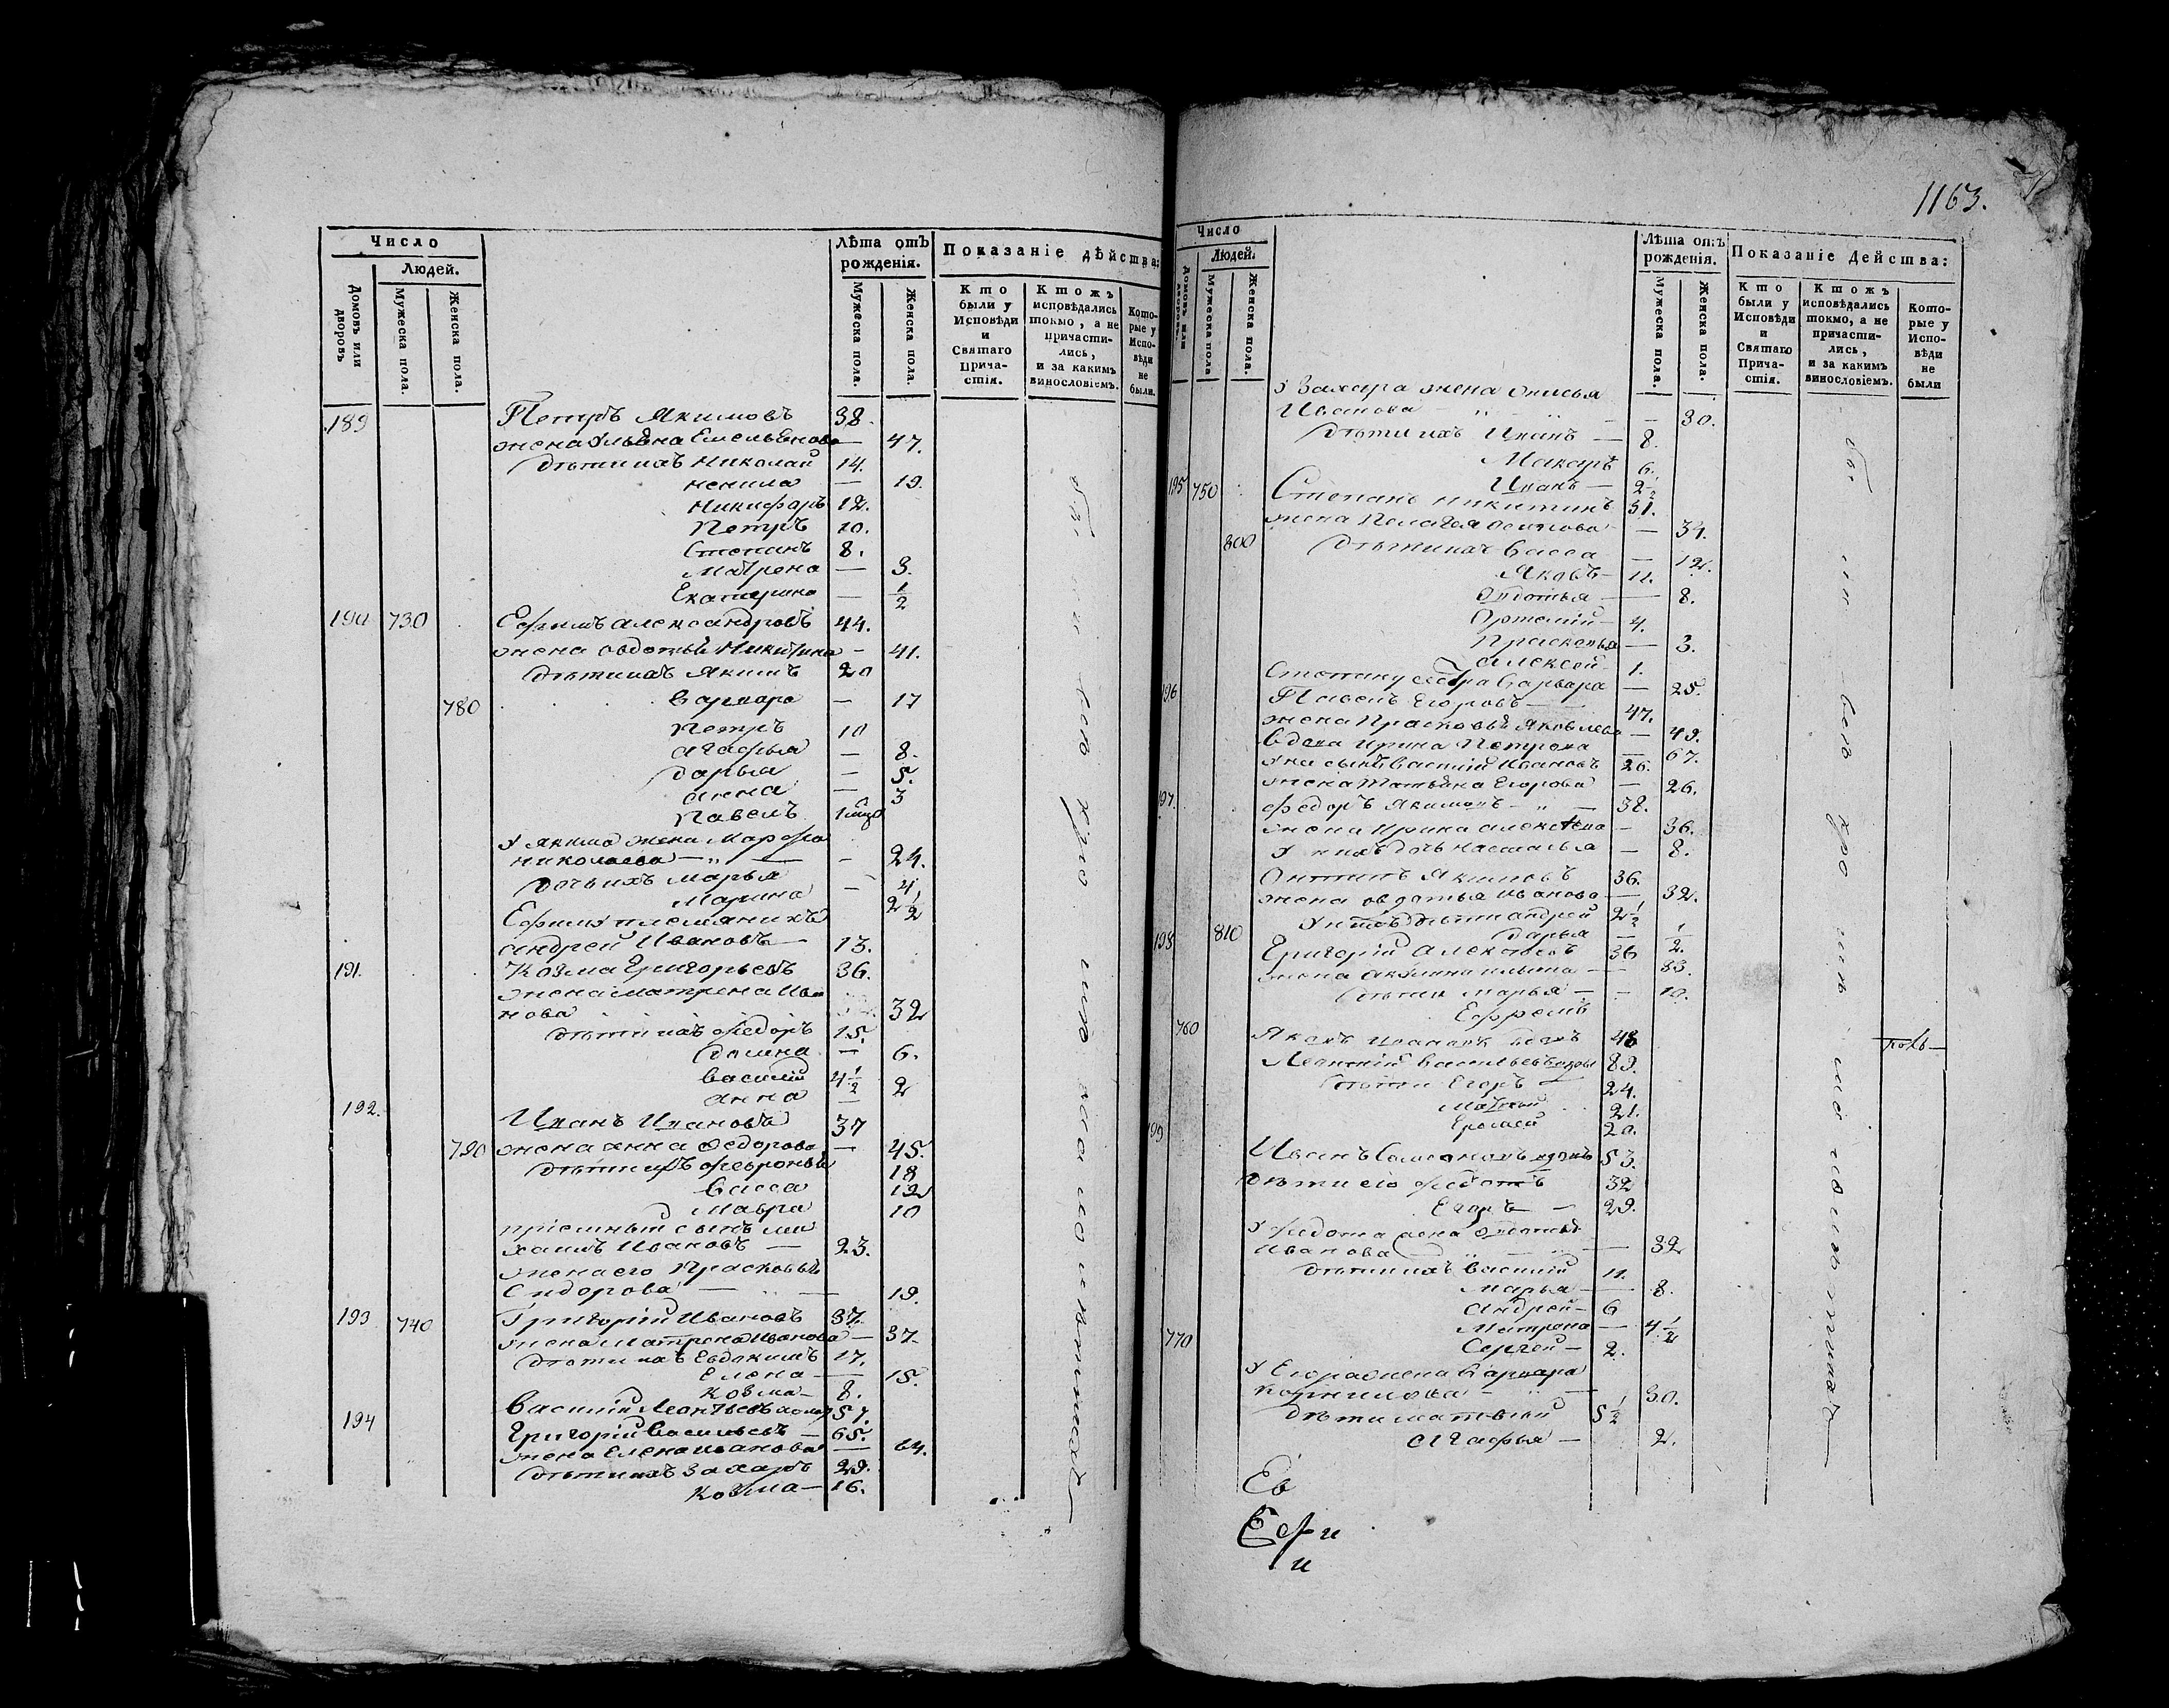 Число
Людей.
Домовъ или дворовъ
Мужеска пола.
Женска пола.
Лѣта отъ рожденія.
Мужеска пола.
Женска пола.
Показаніе дѣйства:
Кто были у Исповѣди и Святаго Прича-стія.
Ктожъ исповѣдались токмо, а не причасти-лись, и за какимъ винословіемъ.
Кото-рые у Испо-вѣди не были.
189 Петръ Якимовъ 38.
жена Ульяна Емельянова — 47.
дѣти ихъ Николай 14.
ненила — 19.
Никифоръ 12.
Петръ 10.
Степанъ 8.
Матрена — 3.
Екатерина — 1/2
190 730 Ефимъ александровъ 44.
жена овдотья Никитина — 41.
дѣти ихъ Якимъ 20
780 варвара — 17
Петръ 10
агафья — 8.
дарья — 5.
анна — 3
Павелъ 1
У якима жена Марфа
николаева — „ — 24.
дочь ихъ марья — 4.
Марина 2 1/2
Ефиму племяникъ
андрей Ивановъ — 13.
191. Козма Григорьевъ 36.
жена матрена Ива
нова 32
дѣти ихъ федоръ 15.
домна — 6.
василій 4 1/2
анна — 2
192. Иванъ Ивановъ 37
790 жена анна федорова — 45.
дѣти ихъ февронья 18
васса 12
Мавра 10
пріемныи сынъ ми
хаилъ Ивановъ — 23.
жена его Прасковья
Сидорова — 19.
193 740 Григорій Ивановъ 37.
жена матрена Иванова — 37.
дѣти ихъ Евдокимъ 17.
Елена — 15.
козма — 8.
василій Леонтьевъ 57.
194 Григорій васильевъ — 65.
жена елена иванова — 64.
дѣти ихъ захаръ 29.
козма — 16.
1163.
Число
Людей.
Домовъ или дворовъ.
Мужеска пола
Женска пола.
Лѣта отъ рожденія.
Мужеска пола.
Женска пола.
Показаніе Действа:
Кто были у Исповѣди и Святаго Прича-стія.
Ктожъ исповѣдались токмо, а не причасти-лись, и за какимъ винословіемъ.
Кото-рые у Испо-вѣди не были
У Захара жена
Иванова — 30.
дѣти ихъ Иванъ — 8.
Макаръ 6.
Иванъ — 2 1/2
195 750 Степанъ никитинъ 31.
жена Пелагея осипова — 34.
800 дѣти ихъ васса — 12.
Яковъ — 11.
овдотья — 8.
ортемій — 4.
Прасковья — 3.
алексей 1.
Степану сестра варвара — 25.
196 Павелъ Егоровъ — 47.
жена Прасковья яковлева — 49.
вдова ирина Петрова — 67.
у ней сынъ василій Ивановъ 26.
жена татьяна Егорова — 26.
197. федоръ якимовъ — „ — 38.
жена ирина алексеева — 36.
у нихъ дочь наталья — 8.
онтипъ якимовъ 36.
жена овдотья иванова — 32.
у нихъ дѣти андрей 2 1/2
810 дарья — 1/2.
198 Григорій алексеевъ 36
жена акулина ильина — 33.
дѣти марья — 10.
Ефремъ
760 Яковъ Ивановъ вдовъ 48
Леонтій васильевъ вдовъ 89.
дѣти Егоръ — 24.
Матвей 21.
Ермей 20.
199 Иванъ вдовъ 53.
Дѣти его федотъ 32
Егоръ — 29.
У федота жена овдотья
иванова — 32
дѣти ихъ василій 11.
марья — 8.
андрей — 6
Матрена — 4 1/2
770 Сергей — 2.
У Егора жена варвара
корнилова — 30.
дѣти матвей 5 1/2
агафья — 2.
Ев
Ефи
и